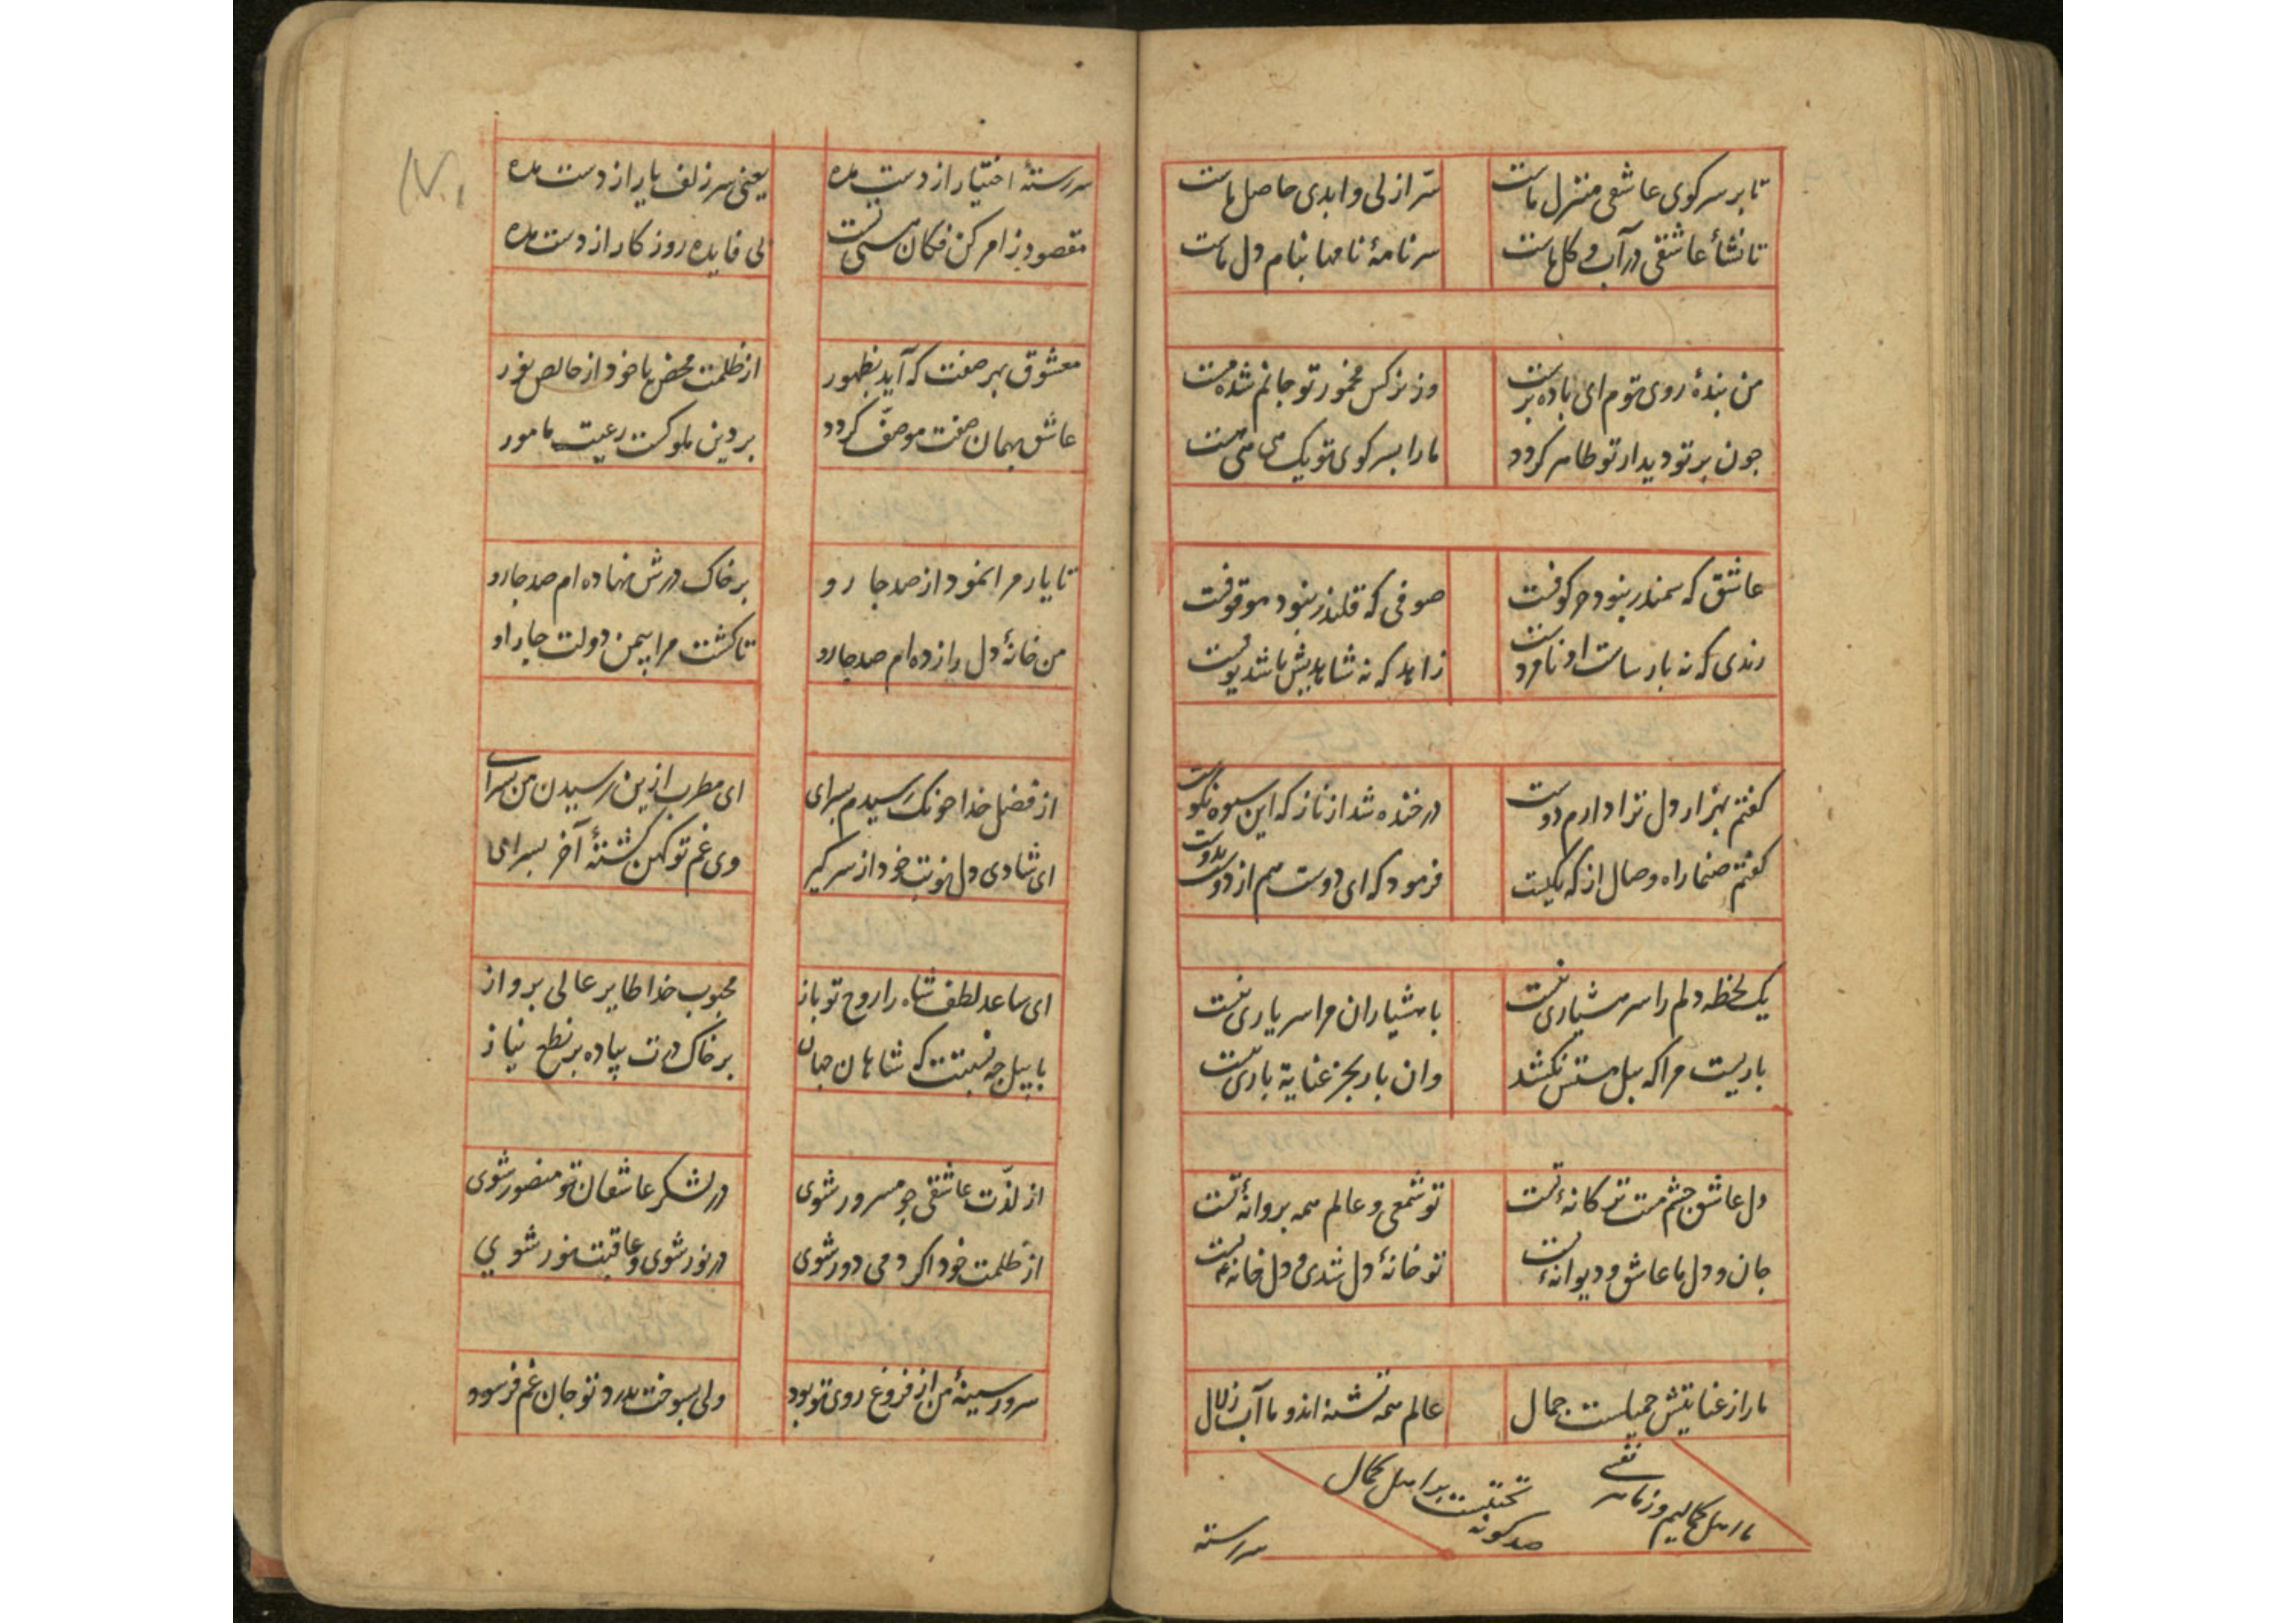 تا بر سر کوی عاشقی منزل ماست سرّ ازلی و ابدی حاصل ماست
تا نشأ عاشقی در آب و کل ماست سر نامهٔ نامها بنام دل ماست
من بندهٔ روی توم ای باده پرست وز نرکس مخمور تو جانم شده مست
جون برتو دیدار تو ظاهر کردد ما را بسر کوی تو یک می نی هست
عاشق که سمندر بنود حر کوفت صوفی که قلندر بنود موقوفت
رندی که نه بارساست او نامردست زاهد که نه شاهدیش باشد
کفتم بهزار دل ترا دارم دوست در خنده شد از ناز که این سیوه نکوست
کفتم صنما راه وصال از که یکیست فرمود که ای دوست هم از دوست بدوست
یک لحظه دلم را سر هشیاری نیست با هشیاران مرا سر یاری نیست
باریست مرا که بیل مستش نکشد وان بار بجز عنایة باری نیست
دل عاشق جشم مست ترکانهٔ تست تو شمعی و عالم همه بروانهٔ تست
جان و دل ما عاشق و دیوانهٔ تست تو خانهٔ دل شدی و دل خانهٔ تست
ما را ز عنایتش جمیلست جمال عالم همه تشنه اند و ما آب زلال
ما اهل کمالیم و ز ما هر نفسی صد کونه تحیتست بر اهل کمال
سررشته
سررشتهٔ اختیار از دست مده یعنی سر زلف یار از دست مده
مقصود ز امر کن فکان هستی تست بی فایده روز کار از دست مده
معشوق بهر صفت که آید بظهور از ظلمت محض یا خود از خالص نور
عاشق بهمان صفت موصّف کردد بر دین ملوکست رعیت مامور
تا یار مرا نمود از صد جا رو بر خاک درش نهاده ام صد جا رو
من خانهٔ دل را زده ام صد جارو تا کشت مرا بیمن دولت جا راو
از فضل خدا جونک رسیدم بسرای ای مطرب ازین رسیدن من بسرای
ای شادی دل نوبت خود از سر کیر وی غم تو کهن کشتهٔ آخر بسر ای
ای ساعد لطف شاه را روح تو باز محبوب خدا طایر عالی برواز
با بیل جه نسبتت که شاهان جهان بر خاک درت پیاده بر نطع نیاز
از لذّت عاشقی جو مسرور شوی در لشکر عاشقان تو منصور شوی
از ظلمت خود اکر دمی دور شوی در نور شوی و عاقبت نور شوی
سرور سینهٔ من از فروغ روی تو بود ولی بسوخت بدرد تو جان غم فرسود